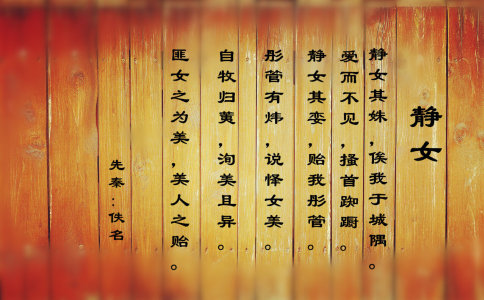 静女
静女其姝，俟我于城隅。
爱而不见，搔首踟蹰。
静女其娈，贻我彤管。
彤管有炜，说怿女美。
自牧归荑，洵美且异。
匪女之为美，美人之贻。
先秦：佚名